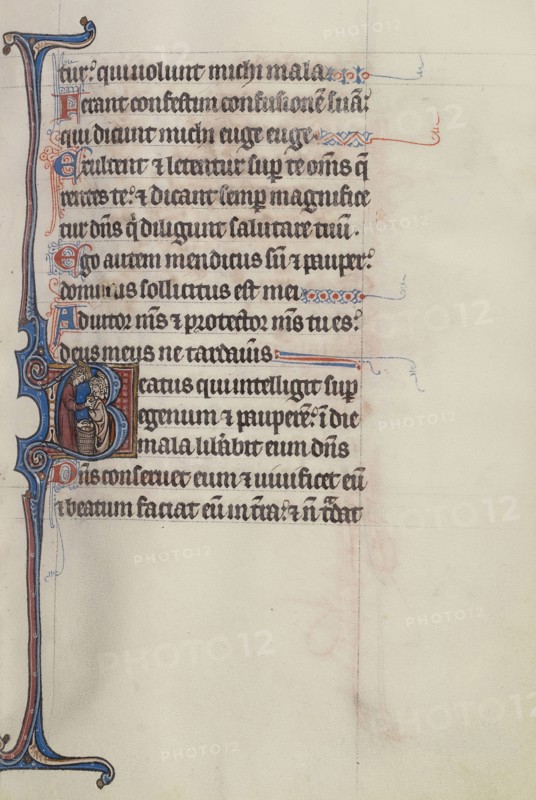 tur: qui uolunt michi mala
Ferant confestim confusionē suā:
qui dicunt michi euge euge
Exultent ⁊ letentur sup te om̄s q̄
rentes te: ⁊ dicant semp magnifice
tur dn̄s q̇ diligunt salutare tuū.
Ego autem mendicus sū ⁊ pauper:
dominus sollicitus est mei
Adiutor m̄s ⁊ protector m̄s tu es:
deus meus ne tardaūis
Beatus qui intelligit sup
egenum ⁊ pauperē: ī die
mala lib̄abit eum dn̄s
Dn̄s conseruet eum ⁊ uiuificet eū
⁊ beatum faciat eū in tr̄a: ⁊ n̄ tͣdat
PHOTO12